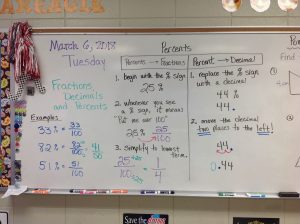 March 6, 2018
Tuesday
Fractions,
Decimals
and Percents
Examples
33% = 33/100
82% = 82/100 = 41/50
51% = 51/100
Percents
Percents → Fractions
1. begin with the % sign
25%
2. whenever you see
a % sign, it means
"Put me over 100"
25% 25/100
3. Simplify to lowest
term.
25/100 = 1/4
Percent → Decimal
1. replace the % sign
with a decimal
44%
44.
2. move the decimal
two places to the left!
44.
0.44
Find
Save the